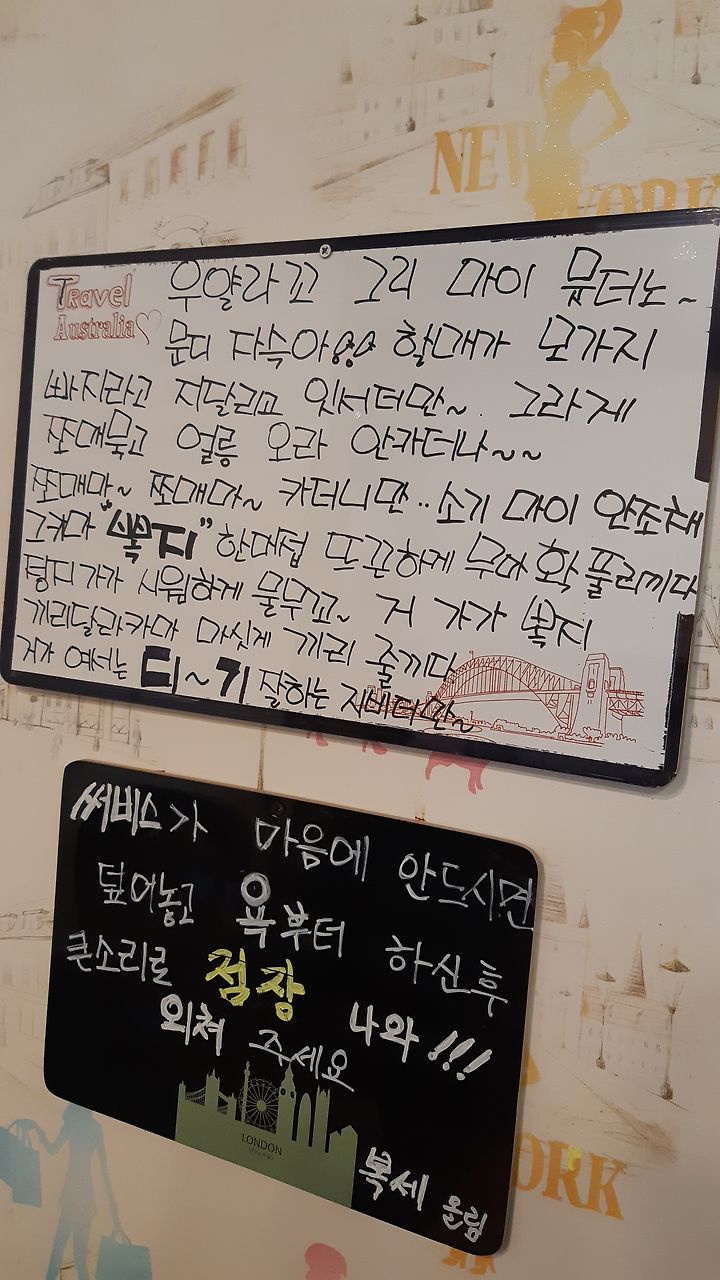 NEW YORK
Travel
Australia
우얄라꼬 그리 마이 뭇더노~
문디 자슥아 할매가 모가지
빠지라고 지달리고 잇서더만~. 그라게
쪼매묵고 얼릉 오라 안카더나~~
쪼매마~ 쪼매마~ 카더니만.. 소기 마이 안조채
그카마 "뽁지" 한데접 뜨끈하게 무마 확 풀리끼다
텅지가가 시원하게 물무꼬~ 거 가가 뽁지
끼리달라카마 마싯게 끼리 줄끼다
거가 예서는 디~기 잘하는 지비더만~
써비스가 마음에 안드시면
덮어놓고 욕부터 하신후
큰소리로 점장 나와!!!
외쳐 주세요
LONDON
복세 올림
ORK